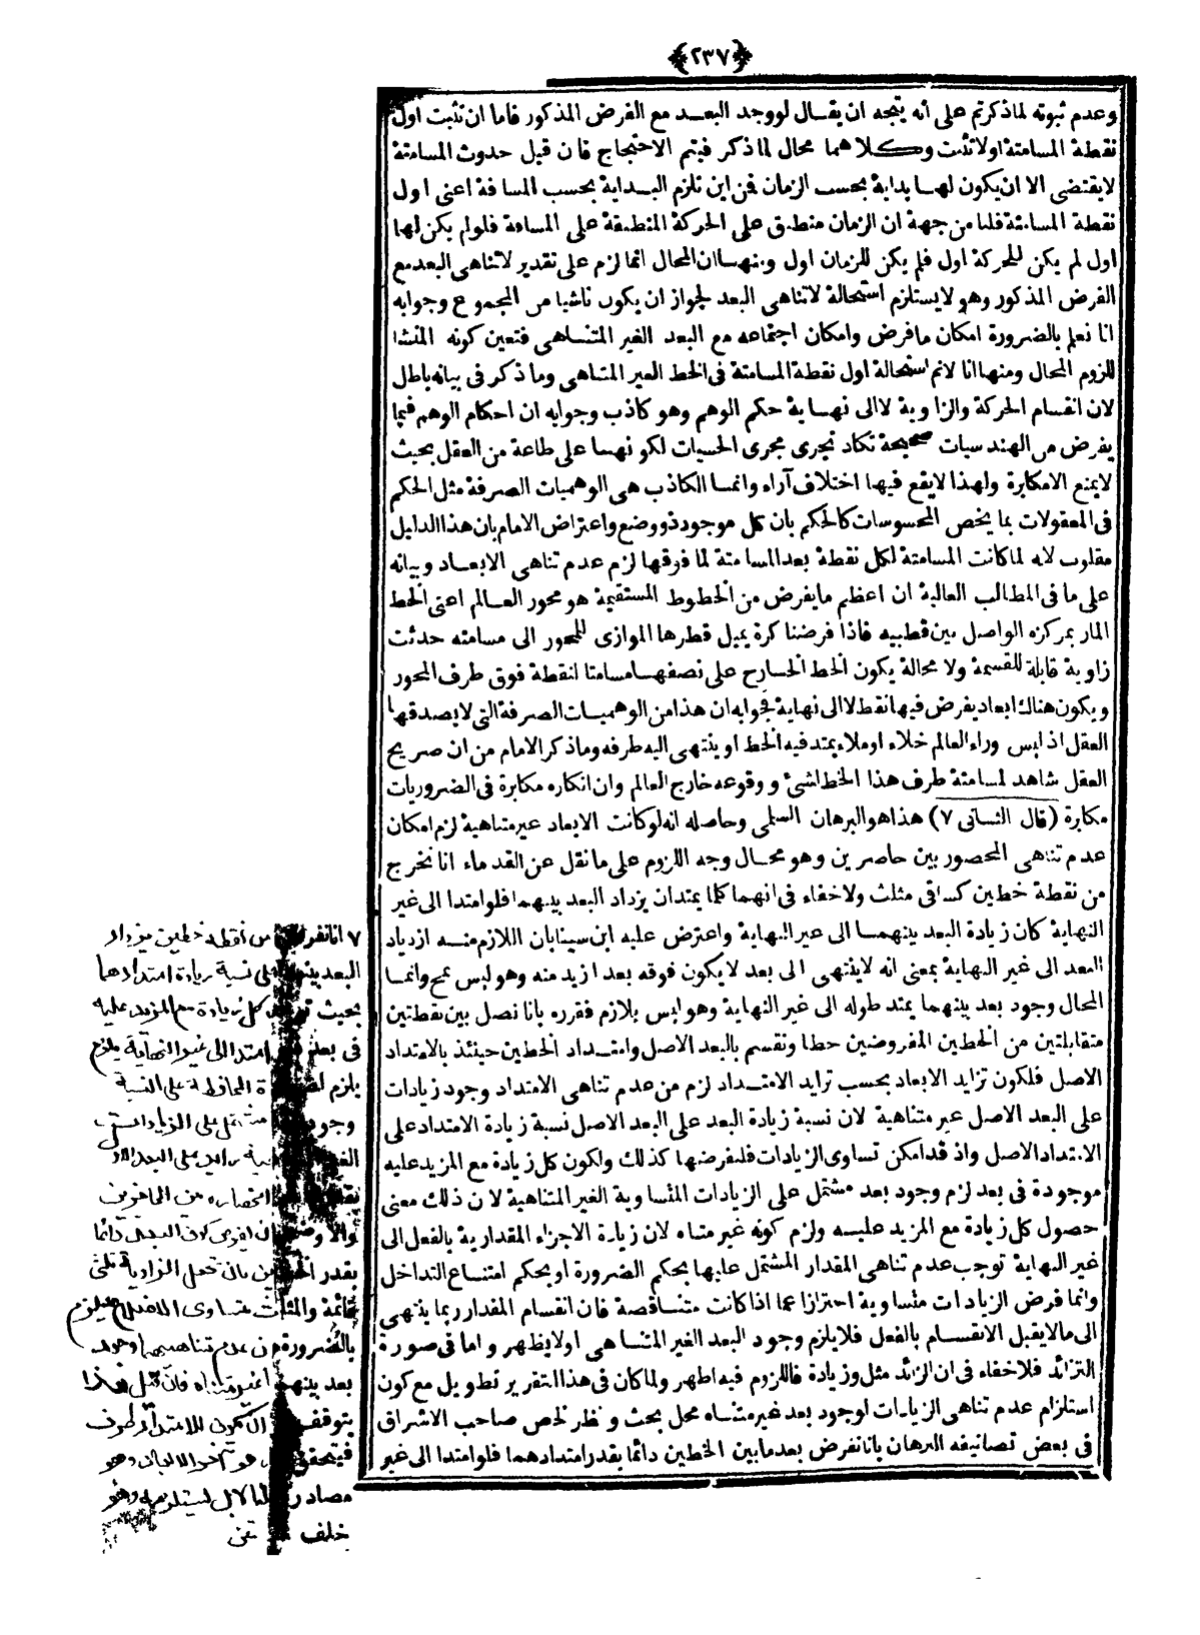 ﴿٢٣٧﴾
وعدم ثبوته لماذكرتم على أنه يتجه ان يقال لووجد البعد مع الفرض المذكور فاما ان تثبت اول
نقطة المسامتة اولا تثبت وكلاهما محال لما ذكر فيتم الاحتجاج فان قيل حدوث المسامتة
لايقتضى الا ان يكون لها بداية بحسب الزمان فمن اين تلزم البداية بحسب المسافة اعنى اول
نقطة المسامتة قلنا من جهة ان الزمان منطبق على الحركة المنطبقة على المسافة فلولم يكن لها
اول لم يكن للحركة اول فلم يكن للزمان اول ومنها ان المحال انما لزم على تقدير لاتناهى البعد مع
الفرض المذكور وهو لايستلزم استحالة لاتناهى البعد لجواز ان يكون ناشيا من المجموع وجوابه
انا نعلم بالضرورة امكان مافرض وامكان اجتماعه مع البعد الغير المتناهى فتعين كونه المنشا
للزوم المحال ومنها انا لانم استحالة اول نقطة المسامتة فى الخط الغير المتناهى وما ذكر فى بيانه باطل
لان انقسام الحركة والزاوية لاالى نهاية حكم الوهم وهو كاذب وجوابه ان احكام الوهم فيما
يفرض من الهندسيات صحيحة تكاد تجرى مجرى الحسيات لكونها على طاعة من العقل بحيث
لايمنع الامكابرة ولهذا لايقع فيها اختلاف آراء وانما الكاذب هى الوهميات الصرفة مثل الحكم
فى المعقولات بما يخص المحسوسات كالحكم بان كل موجود ذو وضع واعتراض الامام بان هذا الدليل
مقلوب لانه لما كانت المسامتة لكل نقطة بعد المسامتة لما فوقها لزم عدم تناهى الابعاد وبيانه
على ما فى المطالب العالية ان اعظم مايفرض من الخطوط المستقيمة هو محور العالم اعنى الخط
المار بمركزه الواصل بين قطبيه فاذا فرضنا كرة يميل قطرها الموازى للمحور الى مسامته حدثت
زاوية قابلة للقسمة ولا محالة يكون الخط الخارج على نصفها مسامتا لنقطة فوق طرف المحور
ويكون هناك ابعاد يفرض فيها نقط لاالى نهاية فجوابه ان هذا من الوهميات الصرفة التى لايصدقها
العقل اذ ليس وراء العالم خلاء او ملاء يمتد فيه الخط او ينتهى اليه طرفه وماذكر الامام من ان صريح
العقل شاهد لمسامتة طرف هذا الخط لشئ ووقوعه خارج العالم وان انكاره مكابرة فى الضروريات
مكابرة (قال الثانى ٧) هذا هو البرهان السلمى وحاصله انه لو كانت الابعاد غير متناهية لزم امكان
عدم تناهى المحصور بين حاصرين وهو محال وجه اللزوم على ما نقل عن القدماء انا نخرج
من نقطة خطين كساقى مثلث ولاخفاء فى انهما كلما يمتدان يزداد البعد بينهما فلو امتدا الى غير
النهاية كان زيادة البعد بينهما الى غير النهاية واعترض عليه ابن سينا بان اللازم منه ازدياد
البعد الى غير النهاية بمعنى انه لاينتهى الى بعد لايكون فوقه بعد ازيد منه وهو ليس بمح وانما
المحال وجود بعد بينهما يمتد طوله الى غير النهاية وهو ليس بلازم فقرره بانا نصل بين نقطتين
متقابلتين من الخطين المفروضين خطا ونقسم بالبعد الاصل وامتداد الخطين حينئذ بالامتداد
الاصل فلكون تزايد الابعاد بحسب تزايد الامتداد لزم من عدم تناهى الامتداد وجود زيادات
على البعد الاصل غير متناهية لان نسبة زيادة البعد على البعد الاصل نسبة زيادة الامتداد على
الامتداد الاصل واذ قد امكن تساوى الزيادات فلنفرضها كذلك ولكون كل زيادة مع المزيد عليه
موجودة فى بعد لزم وجود بعد مشتمل على الزيادات المتساوية الغير المتناهية لان ذلك معنى
حصول كل زيادة مع المزيد عليه ولزم كونه غير متناه لان زيادة الاجزاء المقدارية بالفعل الى
غير النهاية توجب عدم تناهى المقدار المشتمل عليها بحكم الضرورة او بحكم امتناع التداخل
وانما فرض الزيادات متساوية احترازا عما اذا كانت متناقصة فان انقسام المقدار ربما ينتهى
الى مالايقبل الانقسام بالفعل فلايلزم وجود البعد الغير المتناهى او لايظهر واما فى صورة
التزائد فلاخفاء فى ان الزائد مثل وزيادة فاللزوم فيه اظهر ولما كان فى هذا التقرير تطويل مع كون
استلزام عدم تناهى الزيادات لوجود بعد غير متناه محل بحث ونظر لخص صاحب الاشراق
فى بعض تصانيفه البرهان بانا نفرض بعد مابين الخطين دائما بقدر امتدادهما فلو امتدا الى غير
٧ انا نفر من نقطة خطين يزداد
البعد بينه على نسبة زيادة امتدادهما
بحيث كل زيادة مع المزيد عليه
فى بعد امتدا الى غير النهاية يلزم
يلزم المحافظة على النسبة
وجود مشتمل على الزيادات
الغير زايد على البعد الاول
انحصاره بين الحاصرين
والاوضح ان يفرض كون البعد دائما
بقدر الخطين بان تجعل الزاوية ثلثى
قائمة والمثلث متساوى الاضلاع فيلزم
بالضرورة من عدم تناهيهما وجود
بعد بينهما غير متناه فان قيل هذا
يتوقف للامتداد طرف
فيتحقق هو آخر الابعاد وهو
مصادر قلنا لا بل يستلزمه وهو
خلف متن